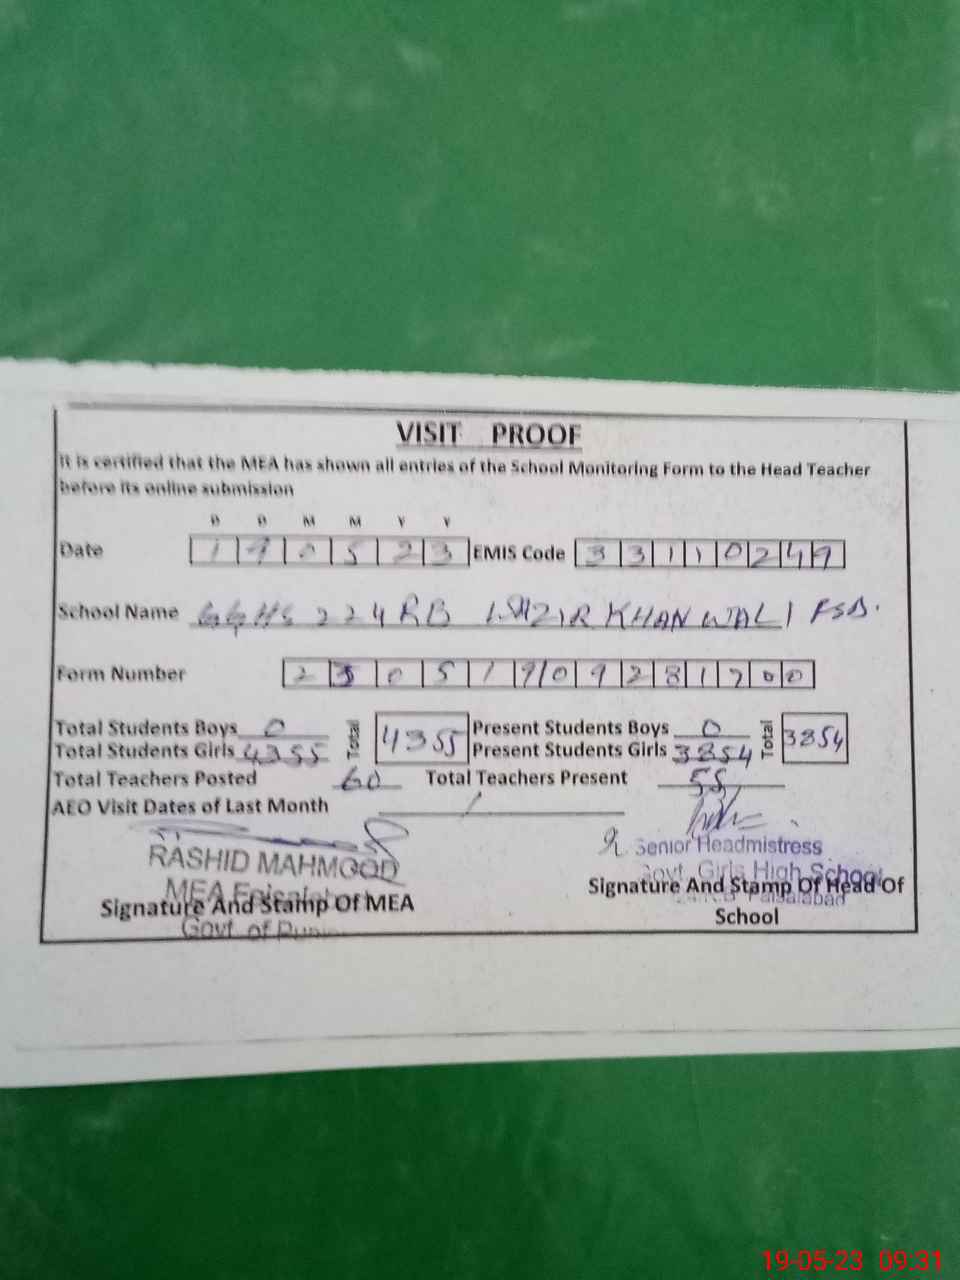 VISIT PROOF
It is certified that the MEA has shown all entries of the School Monitoring Form to the Head Teacher
before its online submission
D D M M Y Y
Date 1 9 0 5 2 3 EMIS Code 3 3 1 1 0 2 4 9
School Name GGHS 224 RB WAZIR KHAN WALI FSD.
Form Number 2 3 0 5 1 9 0 9 2 8 1 7 0 0
Total Students Boys 0 Total 4355 Present Students Boys 0 Total 3854
Total Students Girls 4355 Present Students Girls 3854
Total Teachers Posted 60 Total Teachers Present 55
AEO Visit Dates of Last Month /
RASHID MAHMOOD
MEA Faisalabad
Signature And Stamp Of MEA
Govt. of
Senior Headmistress
Govt. Girls High School
Signature And Stamp Of Head Of
Faisalabad
School
19-05-23 09:31